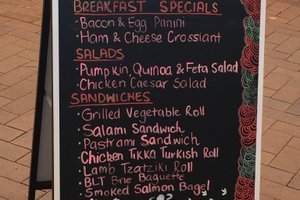 BREAKFAST SPECIALS
· Bacon & Egg Panini
· Ham & Cheese Crossiant
SALADS
· Pumpkin, Quinoa & Feta Salad
· Chicken Caesar Salad
SANDWICHES
· Grilled Vegetable Roll
· Salami Sandwich
· Pastrami Sandwich
· Chicken Tikka Turkish Roll
· Lamb Tzatziki Roll
· BLT Brie Baguette
· Smoked Salmon Bagel